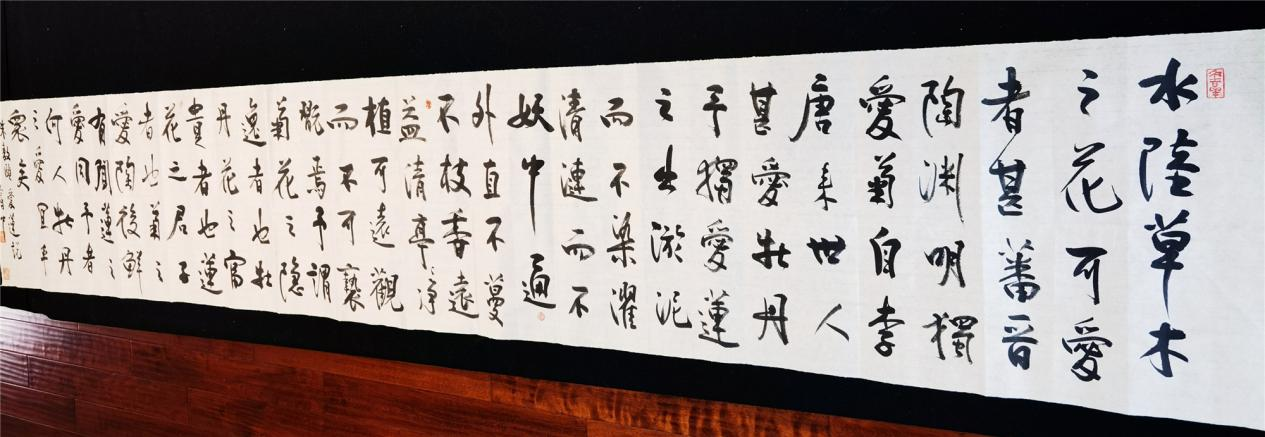 水陸草木
之花可愛
者甚蕃晉
陶渊明獨
愛菊自李
唐来世人
甚愛牡丹
予獨愛蓮
之出淤泥
而不染濯
清漣而不
妖中通
外直不蔓
不枝香遠
益清亭净
植可遠觀
而不可褻
翫焉予謂
菊花之隐
逸者也牡
丹花之富
貴者也蓮
花之君子
者也菊之
愛陶後鮮
有聞蓮之
愛同予者
何人牡丹
之愛宜乎
眾矣
敦頤愛蓮説